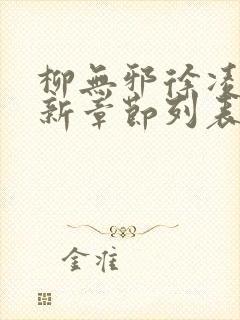 柳無邪徐凌
新章節列表
金准